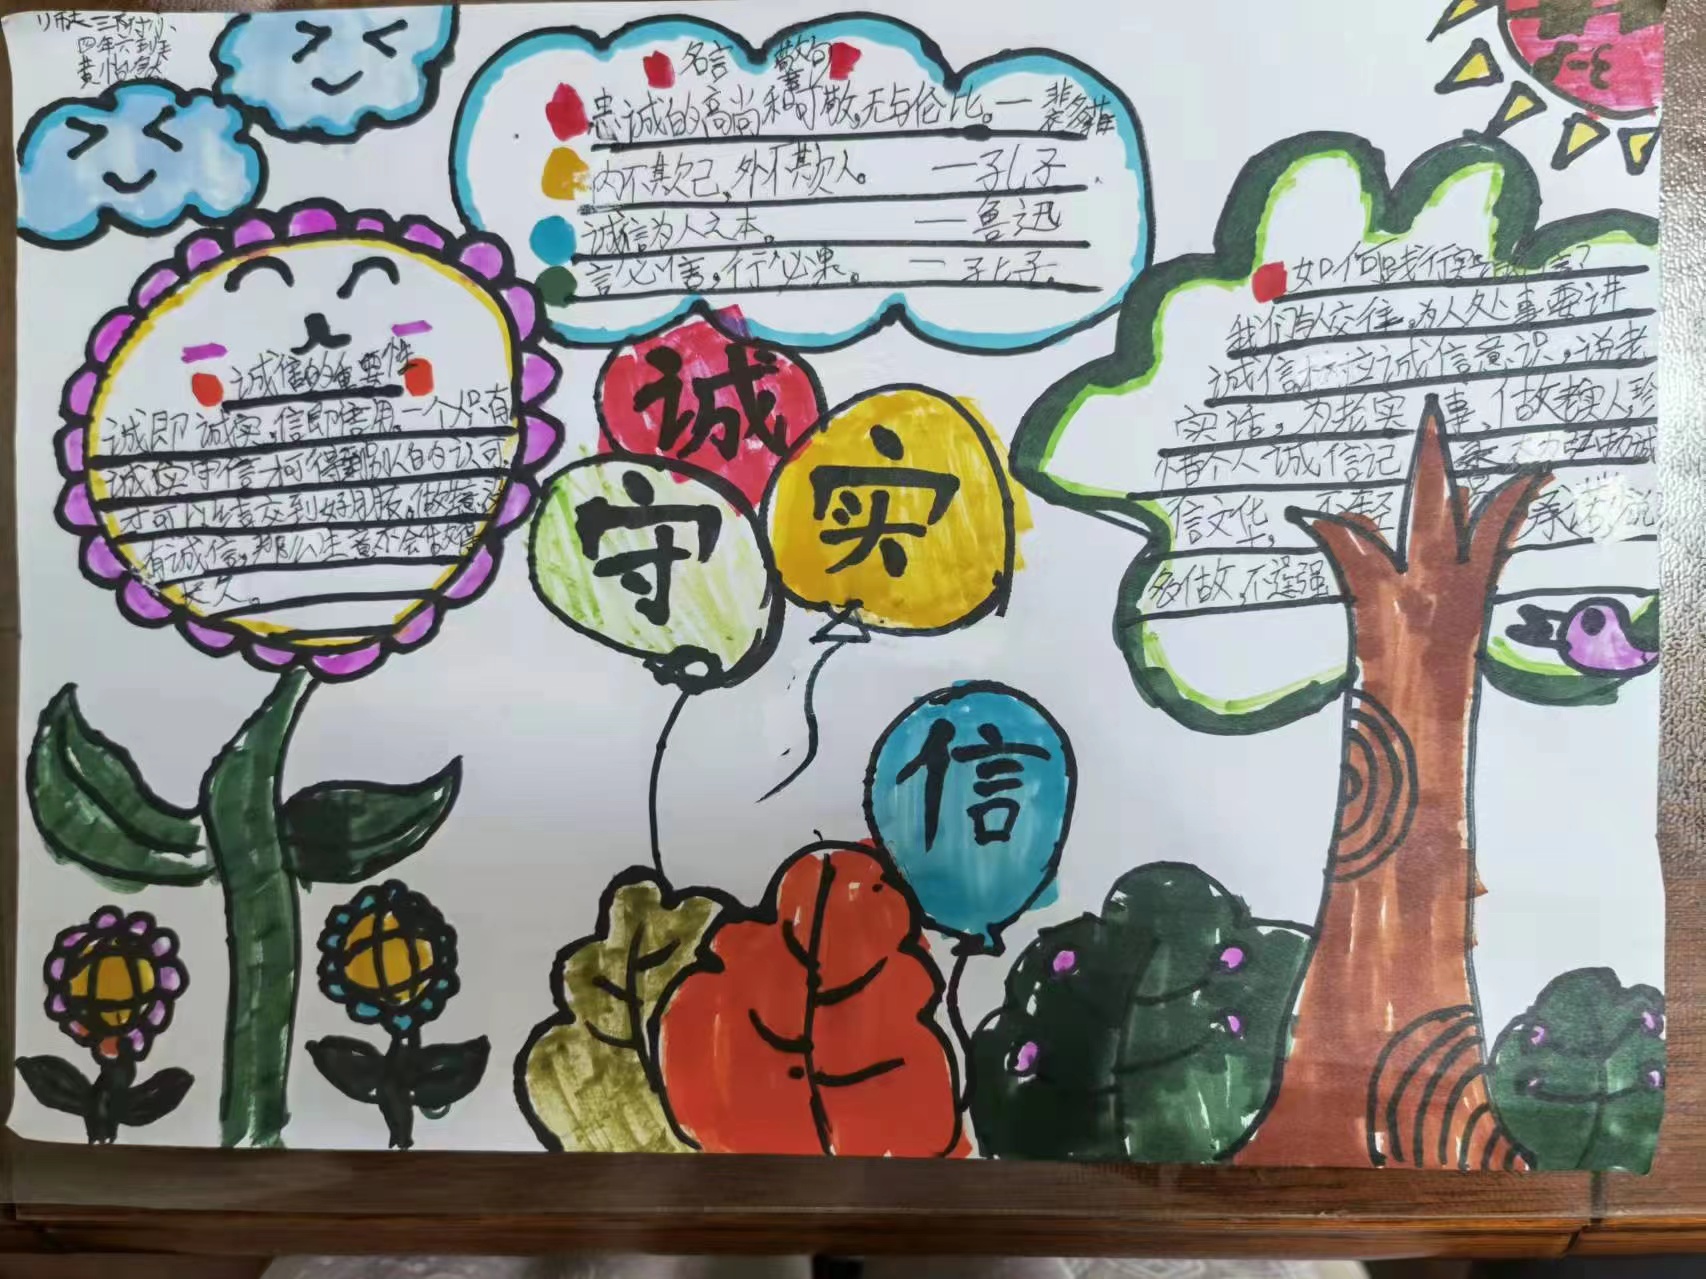 师大三附小
四年六班
名言 警句
忠诚的高尚和可敬,无与伦比。—裴多菲
内不欺己,外不欺人。 —孔子
诚信为人之本。 —鲁迅
言必信,行必果。 —孔子
诚信的重要性
诚即诚实,信即信用,一个人只有
诚实守信才可得到别人的认可
才可以结交到好朋友,做生意
有诚信,那么生意不会做得
长久。
诚
实
守
信
如何践行
我们与人交往,为人处事要讲
诚信,树立诚信意识,说老
实话,为老实事,做老实人,珍
惜个人诚信记录,大力弘扬诚
信文化,不轻易承诺,说
多做,不逞强